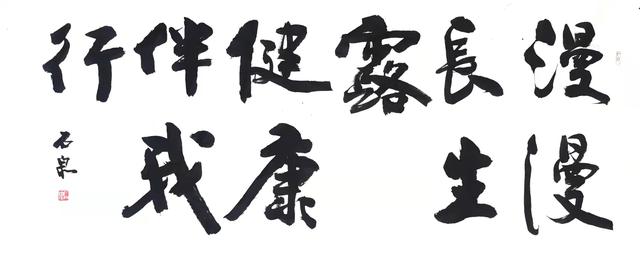 漫漫
長生
露
健康
伴我
行
石泉